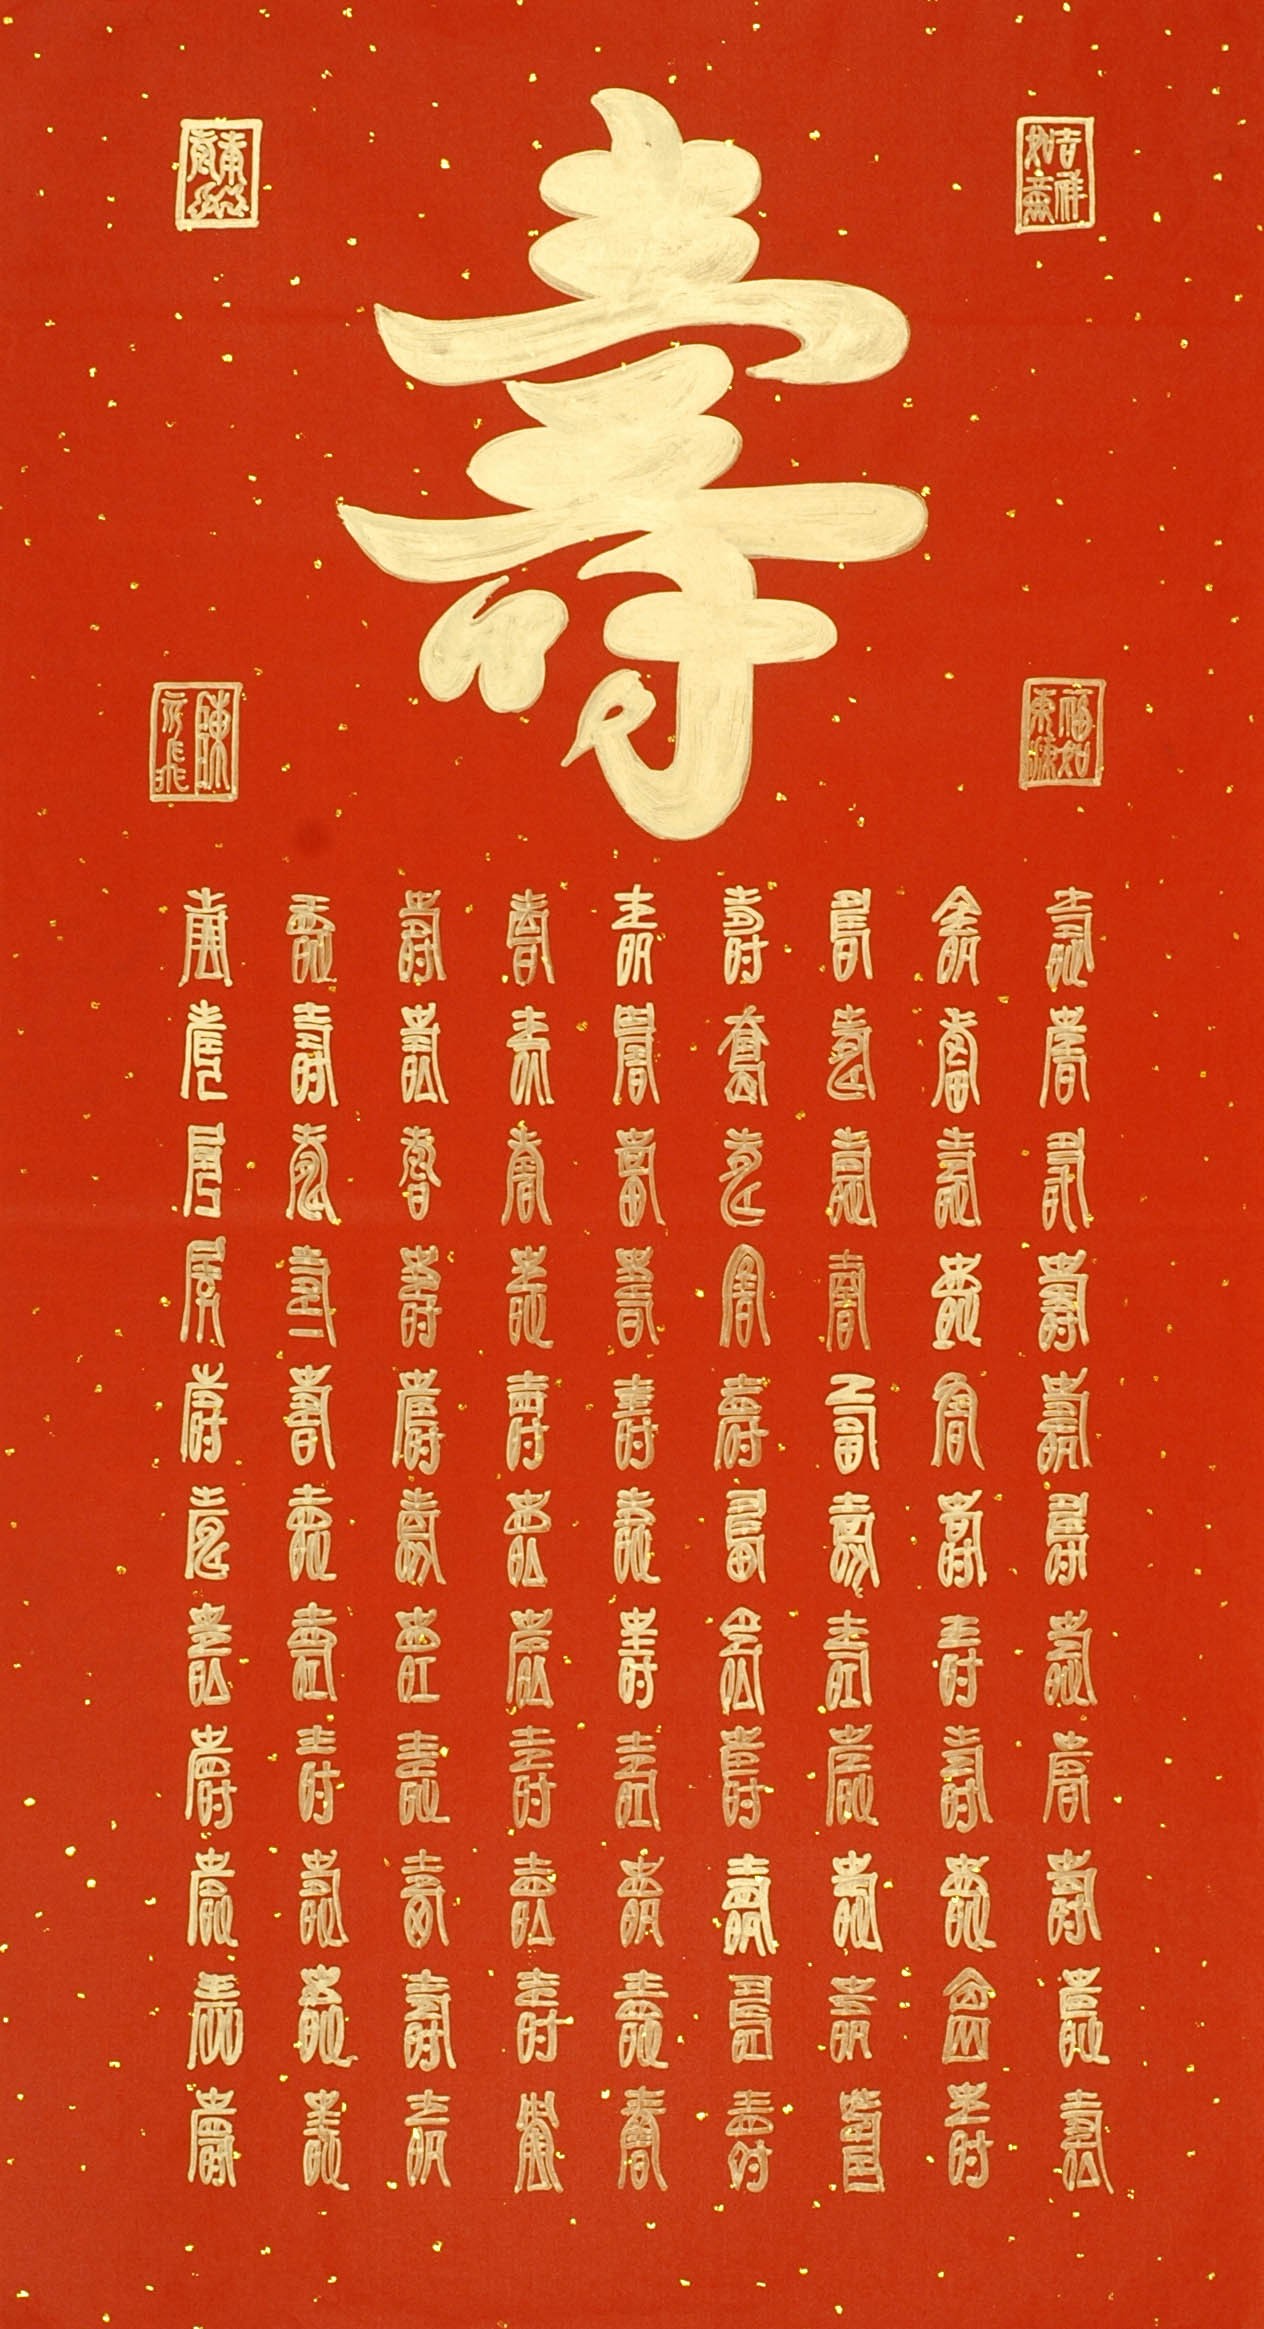 吉祥如意
福如東海
壽
壽壽壽壽壽壽壽壽壽壽壽
壽壽壽壽壽壽壽壽壽壽壽
壽壽壽壽壽壽壽壽壽壽壽
壽壽壽壽壽壽壽壽壽壽壽
壽壽壽壽壽壽壽壽壽壽壽
壽壽壽壽壽壽壽壽壽壽壽
壽壽壽壽壽壽壽壽壽壽壽
壽壽壽壽壽壽壽壽壽壽壽
壽壽壽壽壽壽壽壽壽壽壽